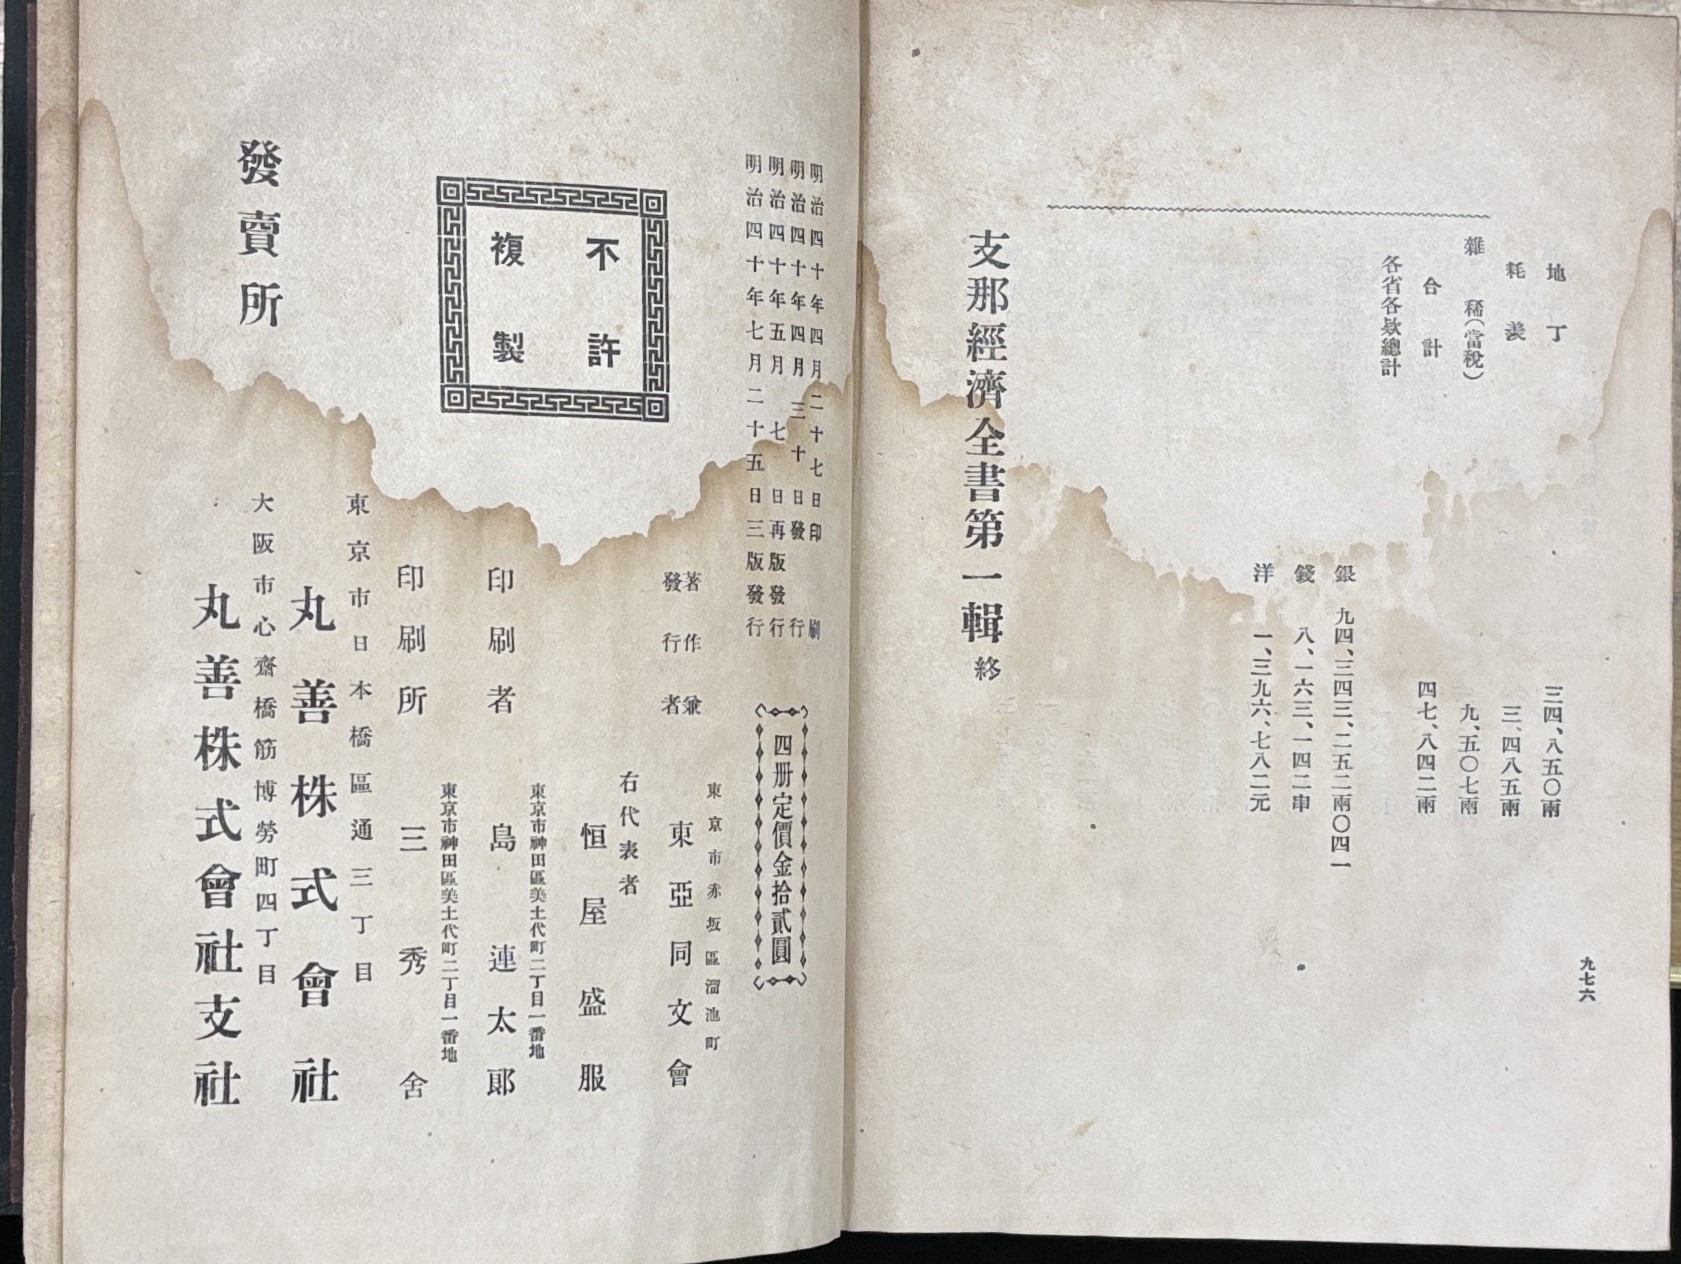 地丁　三四、八五〇兩
耗羨　三、四八五兩
雜稀（當稅）　九、五〇七兩
合計　四七、八四二兩
各省各欵總計
銀　九四、三四三、二五二兩〇四一
錢　八、一六三、一四二串
洋　一、三九六、七八二元
支那經濟全書第一輯終
九七六
明治四十年四月二十七日印刷
明治四十年四月三十日發行
明治四十年五月七日再版發行
明治四十年七月二十五日三版發行
四册定價金拾貳圓
不許
複製
東京市赤坂區溜池町
著作兼
發行者
東亞同文會
右代表者
恒屋盛服
東京市神田區美土代町二丁目一番地
印刷者　島連太郎
東京市神田區美土代町二丁目一番地
印刷所　三秀舍
發賣所
東京市日本橋區通三丁目
丸善株式會社
大阪市心齋橋筋博勞町四丁目
丸善株式會社支社